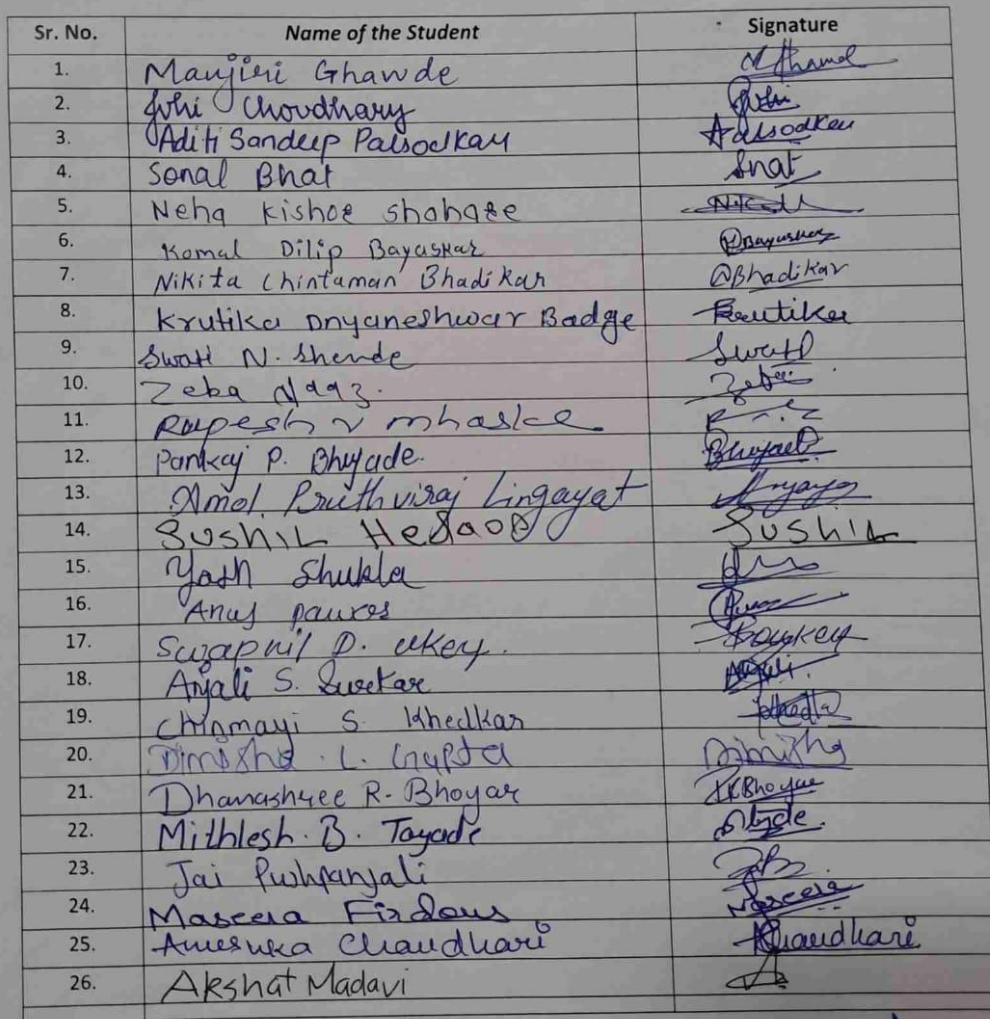 Sr. No. Name of the Student Signature
1. Manjiri Ghawde
2. Juhi Choudhary Juhi
3. Aditi Sandeep Palsodkar Palsodkar
4. Sonal Bhat
5. Neha Kishor Shahare
6. Komal Dilip Bayaskar Bayaskar
7. Nikita Chintaman Bhadikar Bhadikar
8. Krutika Dnyaneshwar Badge Krutika
9. Swati N. Shende Swati
10. Zeba Zeba
11. Rupesh V mhaske
12. Pankaj P. Bhujade.
13. Amol Pruthviraj Lingayat
14. SUSHIL Hedaoo SUSHIL
15. Yash Shukla
16. Anuj
17. Swapnil D. Ukey.
18. Anjali S. Surekar Anjali
19. Chinmayi S Khedkar
20. Dimisha L. Gupta Dimisha
21. Dhanashree R. Bhoyar Bhoyar
22. Mithlesh. B. Tayade
23. Jai Pushpanjali
24. Maseera Firdous Maseera
25. Anushka Chaudhari Chaudhari
26. Akshat Madavi